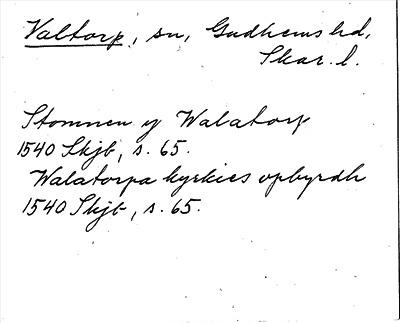 Valtorp, sn, Gudhems hd,
Skar. l.
Stomnen y Walatorp
1540 Skjb, s. 65.
Walatorpa kyrkies opbyrdh
1540 Skjb, s. 65.